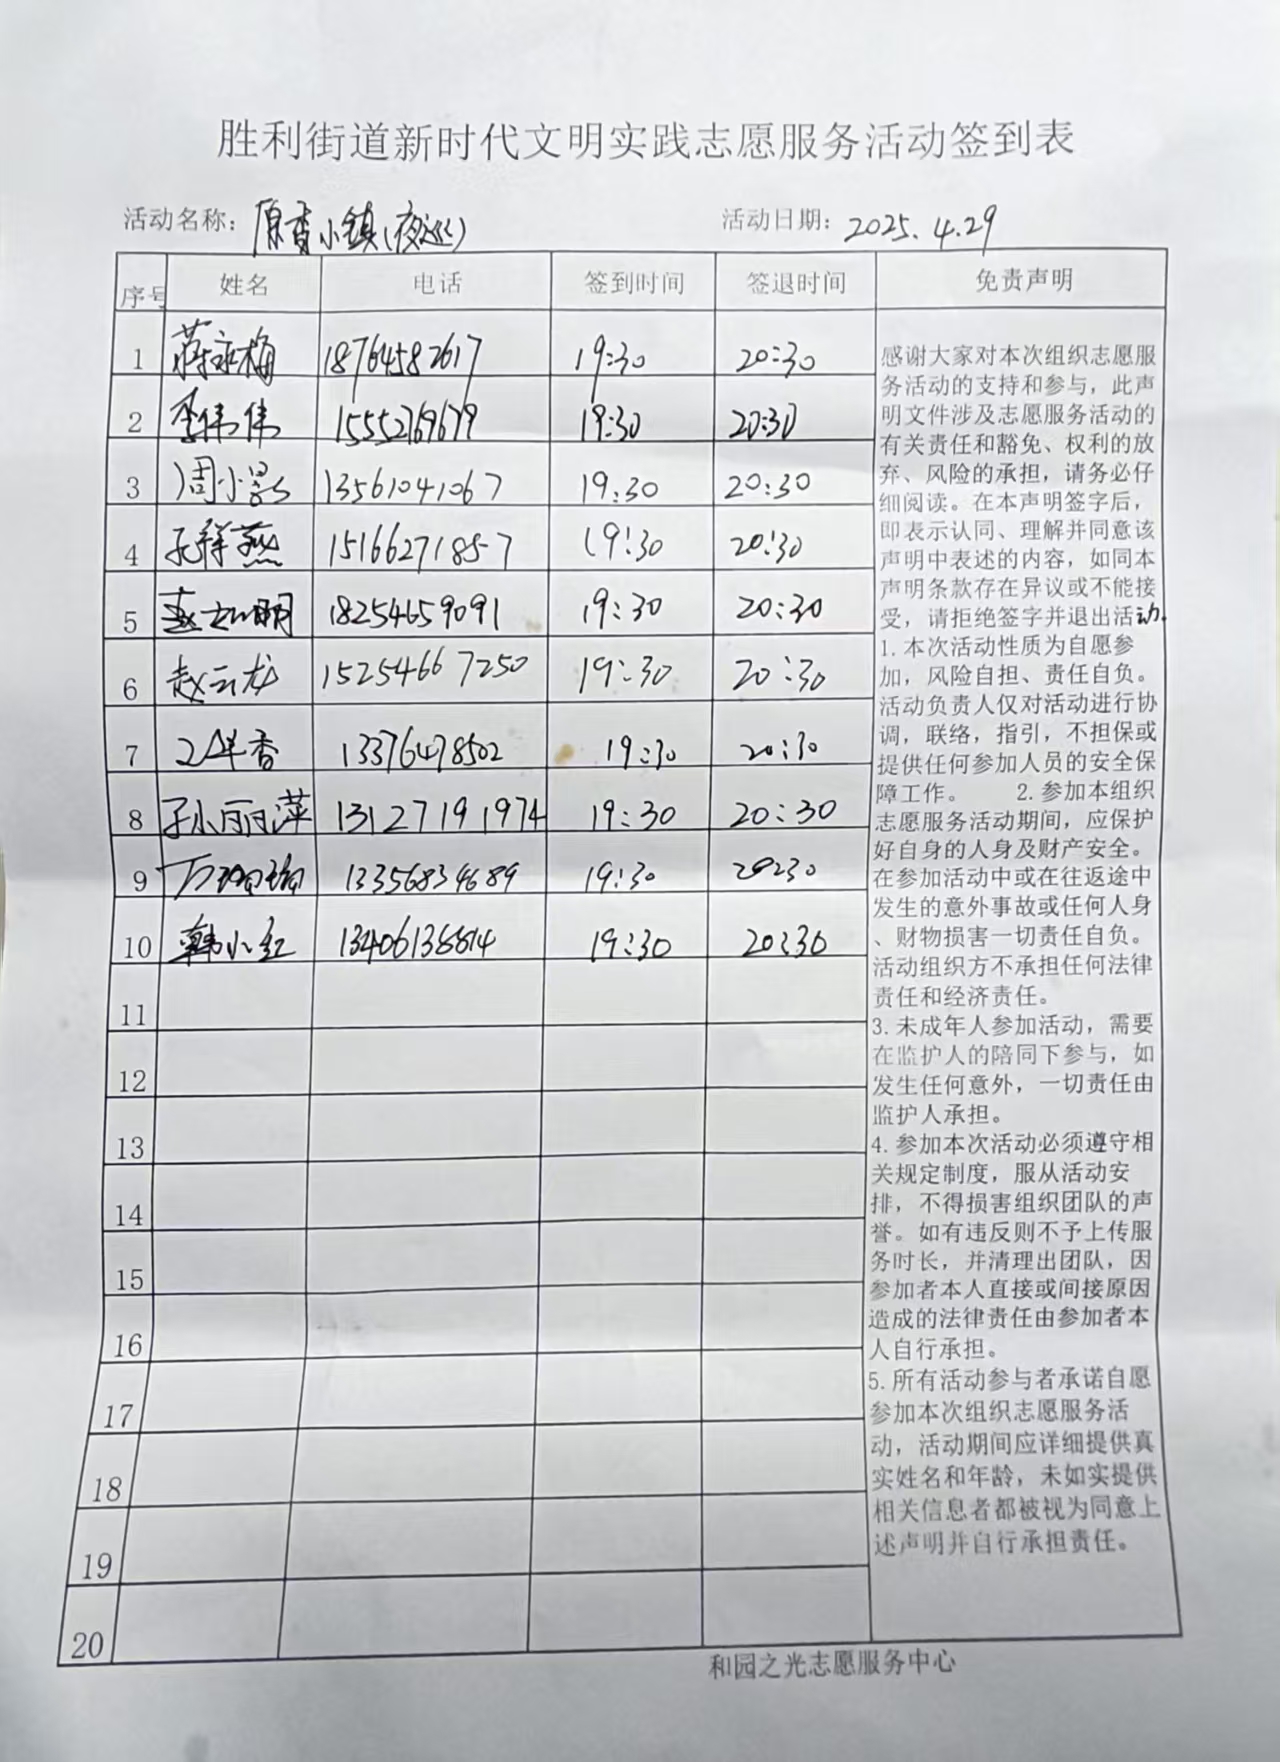 胜利街道新时代文明实践志愿服务活动签到表
活动名称：原香小镇(夜巡) 活动日期：2025.4.29
序号 姓名 电话 签到时间 签退时间 免责声明
1 蒋永梅 18764582617 19:30 20:30
2 李伟伟 15552769679 19:30 20:30
3 周小影 13561041067 19:30 20:30
4 孔祥燕 15166271857 19:30 20:30
5 赵 明 18254659091 19:30 20:30
6 赵云龙 15254667250 19:30 20:30
7 香 13376478502 19:30 20:30
8 小丽萍 13127191974 19:30 20:30
9 万 13356834689 19:30 20230
10 韩小红 13406138814 19:30 20:30
11
12
13
14
15
16
17
18
19
20
感谢大家对本次组织志愿服
务活动的支持和参与，此声
明文件涉及志愿服务活动的
有关责任和豁免、权利的放
弃、风险的承担，请务必仔
细阅读。在本声明签字后，
即表示认同、理解并同意该
声明中表述的内容，如同本
声明条款存在异议或不能接
受，请拒绝签字并退出活动.
1.本次活动性质为自愿参
加，风险自担、责任自负。
活动负责人仅对活动进行协
调，联络，指引，不担保或
提供任何参加人员的安全保
障工作。 2.参加本组织
志愿服务活动期间，应保护
好自身的人身及财产安全。
在参加活动中或在往返途中
发生的意外事故或任何人身
、财物损害一切责任自负。
活动组织方不承担任何法律
责任和经济责任。
3.未成年人参加活动，需要
在监护人的陪同下参与，如
发生任何意外，一切责任由
监护人承担。
4.参加本次活动必须遵守相
关规定制度，服从活动安
排，不得损害组织团队的声
誉。如有违反则不予上传服
务时长，并清理出团队，因
参加者本人直接或间接原因
造成的法律责任由参加者本
人自行承担。
5.所有活动参与者承诺自愿
参加本次组织志愿服务活
动，活动期间应详细提供真
实姓名和年龄，未如实提供
相关信息者都被视为同意上
述声明并自行承担责任。
和园之光志愿服务中心